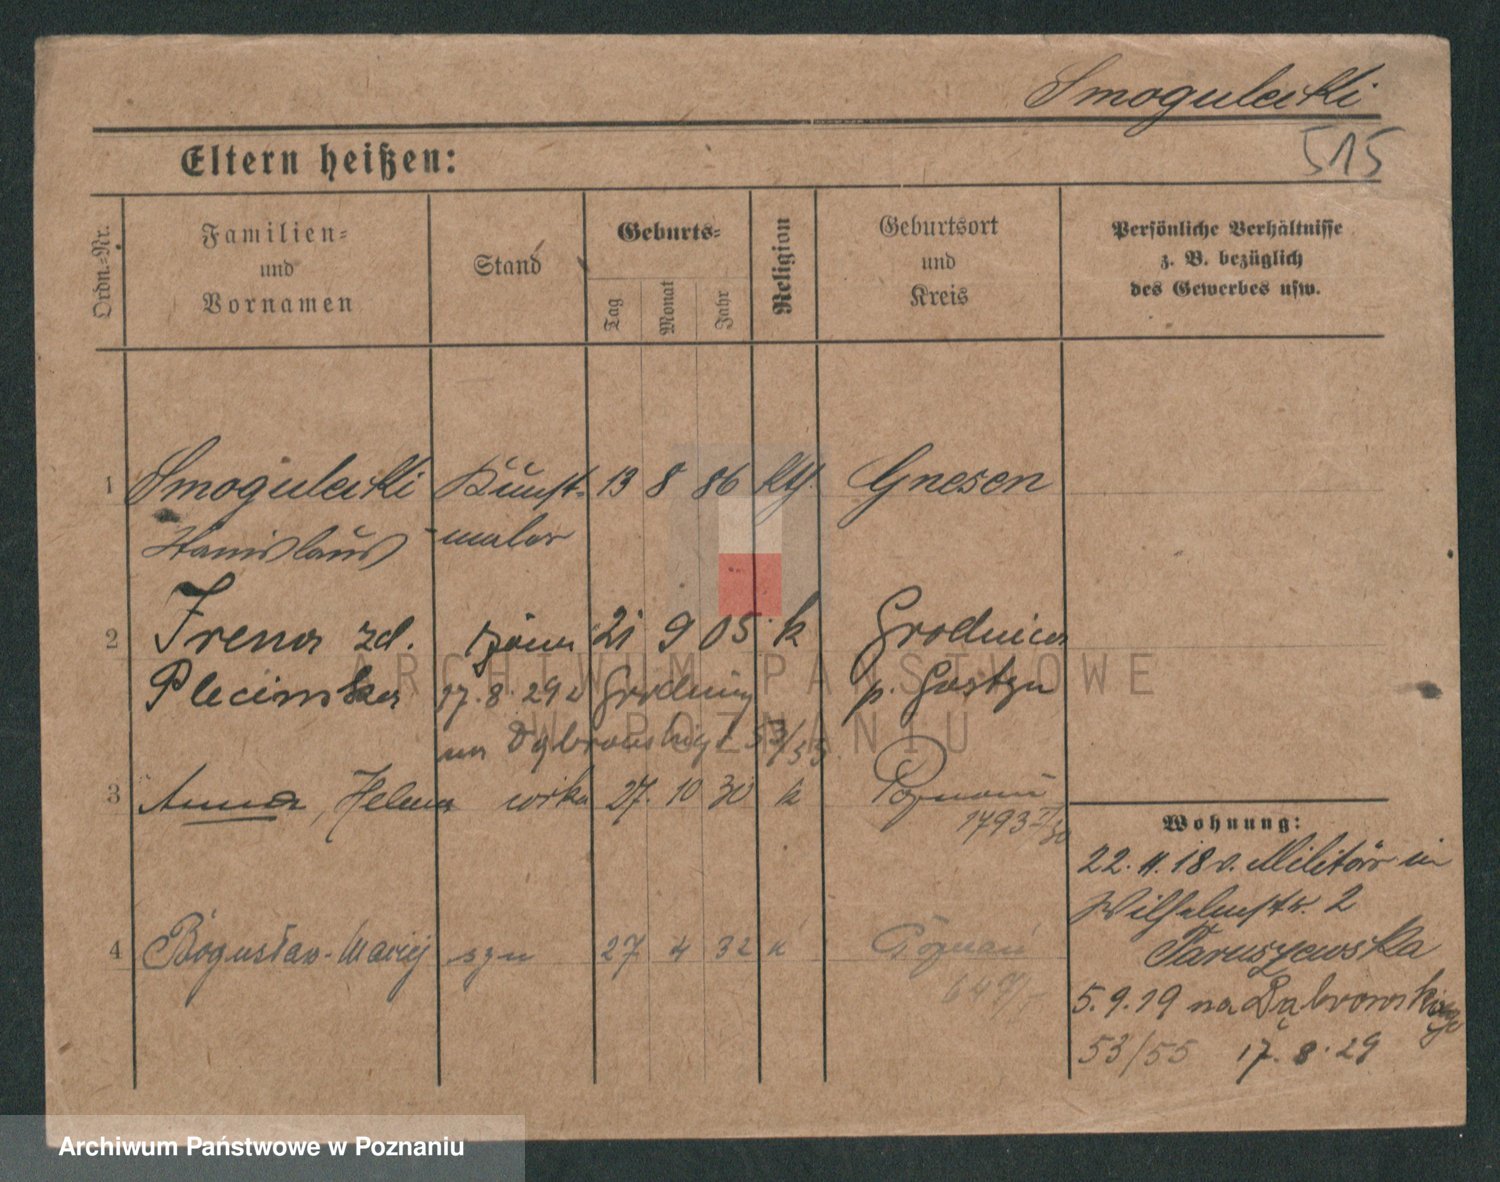 Smogulecki
515
Eltern heißen:
Ordn.-Nr.
Familien-
und
Vornamen
Stand
Geburts-
Tag
Monat
Jahr
Religion
Geburtsort
und
Kreis
Persönliche Verhältnisse
z. B. bezüglich
des Gewerbes usw.
1 Smogulecki Kunst- 13 8 86 kth. Gnesen
Stanislaus -maler
2 Irena zd. żona 21 9 05 k Grodnica
Plecinska 17.8.29 z Grodnicy p. Gostyn
na Dąbrowskiego 53/55
3 Anna, Helena córka 27. 10 30 k Poznań
1793
Wohnung:
22.11.18 v. Militär in
Wilhelmstr. 2
4 Bogusław-Maciej syn 27 4 32 k Poznań
Taruszewska
5.9.19 na Dąbrowskiego
53/55 17.8.29
ARCHIWUM PAŃSTWOWE
W POZNANIU
Archiwum Państwowe w Poznaniu